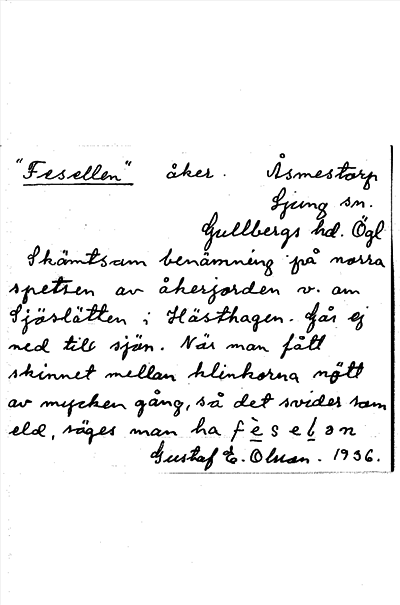 "Fesellen" åker. Åsmestorp
Ljung sn.
Gullbergs hd. Ögl
Skämtsam benämning på norra
spetsen av åkerjorden v. om
Sjöslätten i Hästhagen. Går ej
ned till sjön. När man fått
skinnet mellan klinkorna nött
av mycken gång, så det svider som
eld, säges man ha fèselən
Gustaf E. Olsson. 1936.